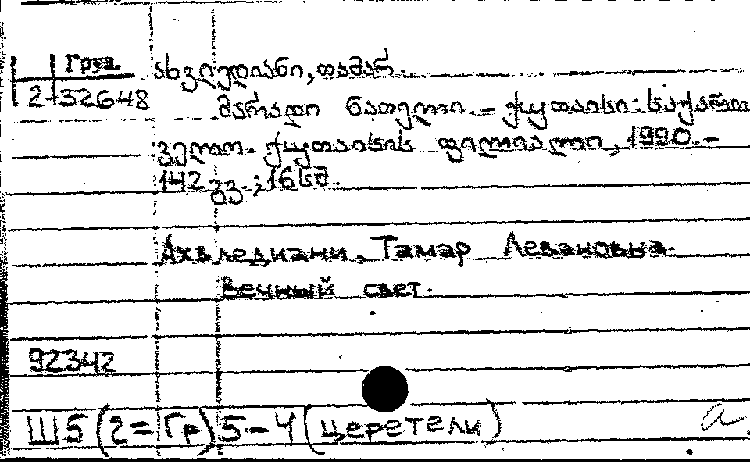 Груз.
2-32648
ახვლედიანი, თამარ.
მარადი ნათელი. – ქუთაისი: საქართ
ველო. ქუთაისის ფილიალი, 1990. –
142 გვ.; 16 სმ.
Ахвледиани, Тамар Левановна.
Вечный свет.
92342
Ш5(2=Гр)5-4(церетели)
a.